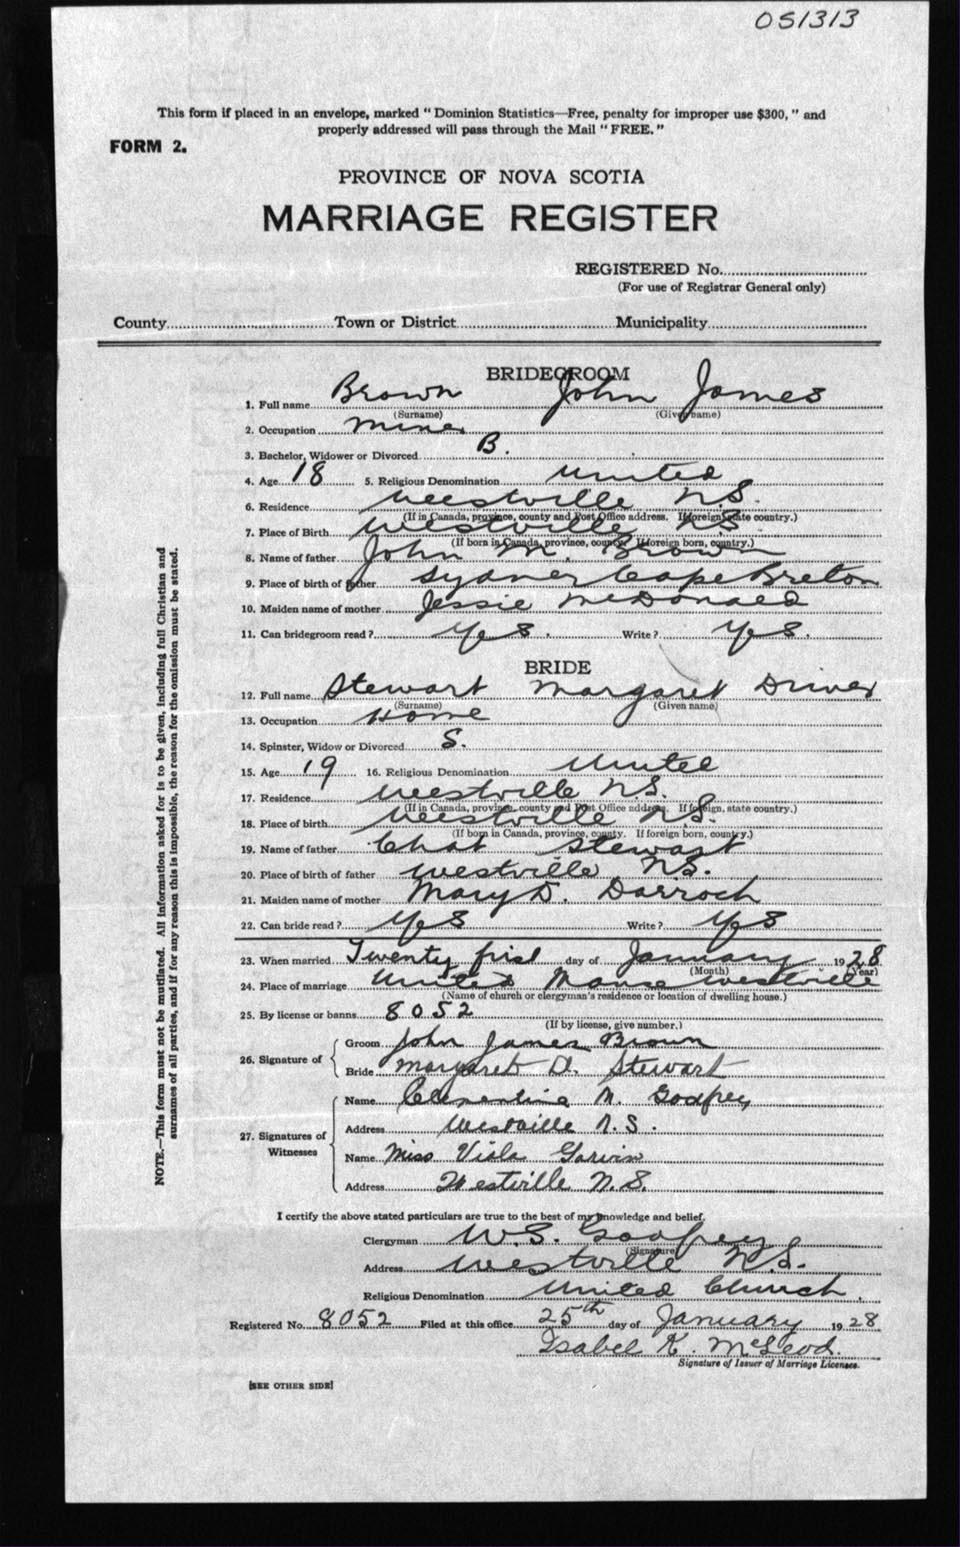 051313
This form if placed in an envelope, marked " Dominion Statistics—Free, penalty for improper use $300, " and
properly addressed will pass through the Mail " FREE. "
FORM 2.
PROVINCE OF NOVA SCOTIA
MARRIAGE REGISTER
REGISTERED No.
(For use of Registrar General only)
County Town or District Municipality
BRIDEGROOM
1. Full name Brown John James
(Surname) (Given name)
2. Occupation miner
3. Bachelor, Widower or Divorced B.
4. Age 18 5. Religious Denomination United
6. Residence Westville N.S.
(If in Canada, province, county and Post Office address. If foreign, state country.)
7. Place of Birth Westville NS
(If born in Canada, province, county. If foreign born, country.)
8. Name of father John M. Brown
9. Place of birth of father Sydney Cape Breton
10. Maiden name of mother Jessie McDonald
11. Can bridegroom read ? Yes. Write ? Yes.
BRIDE
12. Full name Stewart Margaret Driver
(Surname) (Given name)
13. Occupation Home
14. Spinster, Widow or Divorced S.
15. Age 19 16. Religious Denomination United
17. Residence Westville N.S.
(If in Canada, province, county and Post Office address. If foreign, state country.)
18. Place of birth Westville N.S.
(If born in Canada, province, county. If foreign born, country.)
19. Name of father Chas Stewart
20. Place of birth of father Westville N.S.
21. Maiden name of mother Mary D. Darroch
22. Can bride read ? Yes Write ? Yes
23. When married Twenty first day of January 1928
(Month) (Year)
24. Place of marriage United Manse Westville
(Name of church or clergyman's residence or location of dwelling house.)
25. By license or banns 8052
(If by license, give number.)
26. Signature of Groom John James Brown
Bride Margaret D. Stewart
27. Signatures of Witnesses
Name Clementine M. Godfrey
Address Westville N.S.
Name Miss Viola Garvin
Address Westville N.S.
I certify the above stated particulars are true to the best of my knowledge and belief.
Clergyman W.S. Godfrey
(Signature)
Address Westville N.S.
Religious Denomination United Church.
Registered No. 8052 Filed at this office 25th day of January 1928
Isabel K. McLeod.
Signature of Issuer of Marriage Licenses.
[SEE OTHER SIDE]
NOTE.—This form must not be mutilated. All information asked for is to be given, including full Christian and
surnames of all parties, and if for any reason this is impossible, the reason for the omission must be stated.